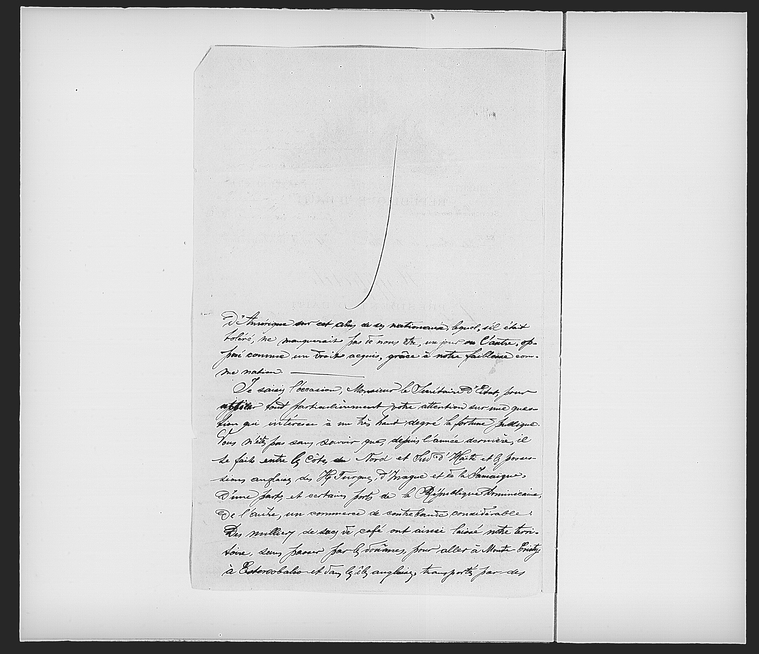 d'Amérique sur cet abus de ses nationaux, lequel, s'il était
toléré, ne manquerait pas de nous être, un jour ou l'autre, op-
posé comme un droit acquis, grâce à notre faiblesse com-
me nation.
Je saisis l'occasion, Monsieur le Secrétaire d'Etat, pour
appeler tout particulièrement votre attention sur une ques-
tion qui intéresse à un très haut degré la fortune publique.
Vous n'êtes pas sans savoir que, depuis l'année dernière, il
se fait entre les Côtes du Nord et Sud d'Haïti et les posses-
sions anglaises des Iles Turques, d'Inague et de la Jamaïque,
d'une part, et certains ports de la République Dominicaine,
de l'autre, un commerce de contrebande considérable:
Des milliers de sacs de café ont ainsi laissé notre terri-
toire, sans passer par les douanes, pour aller à Monte Christy,
à et dans les îles anglaises, transportés par des